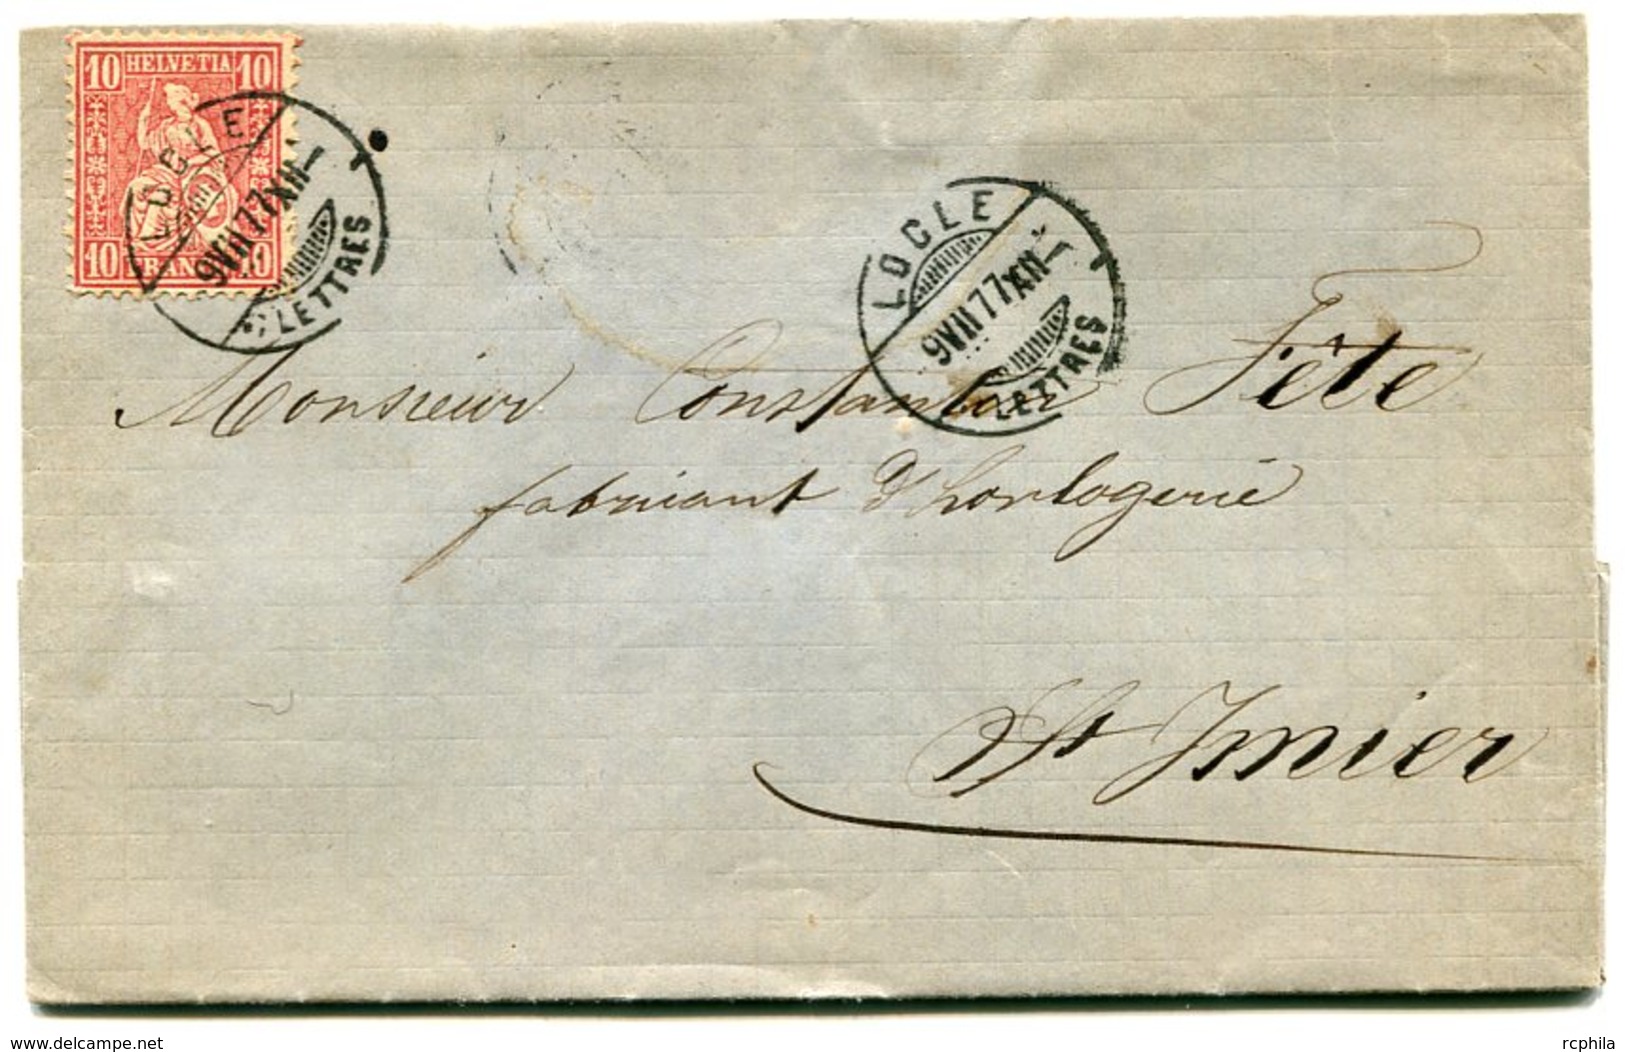 10 HELVETIA 10
10 FRANCO 10
LOCLE
9 VII 77 XII–
LETTRES
LOCLE
9 VII 77 XII–
LETTRES
Monsieur Constantin Fête
fabricant d'horlogerie
St Imier
www.delcampe.net
rcphila